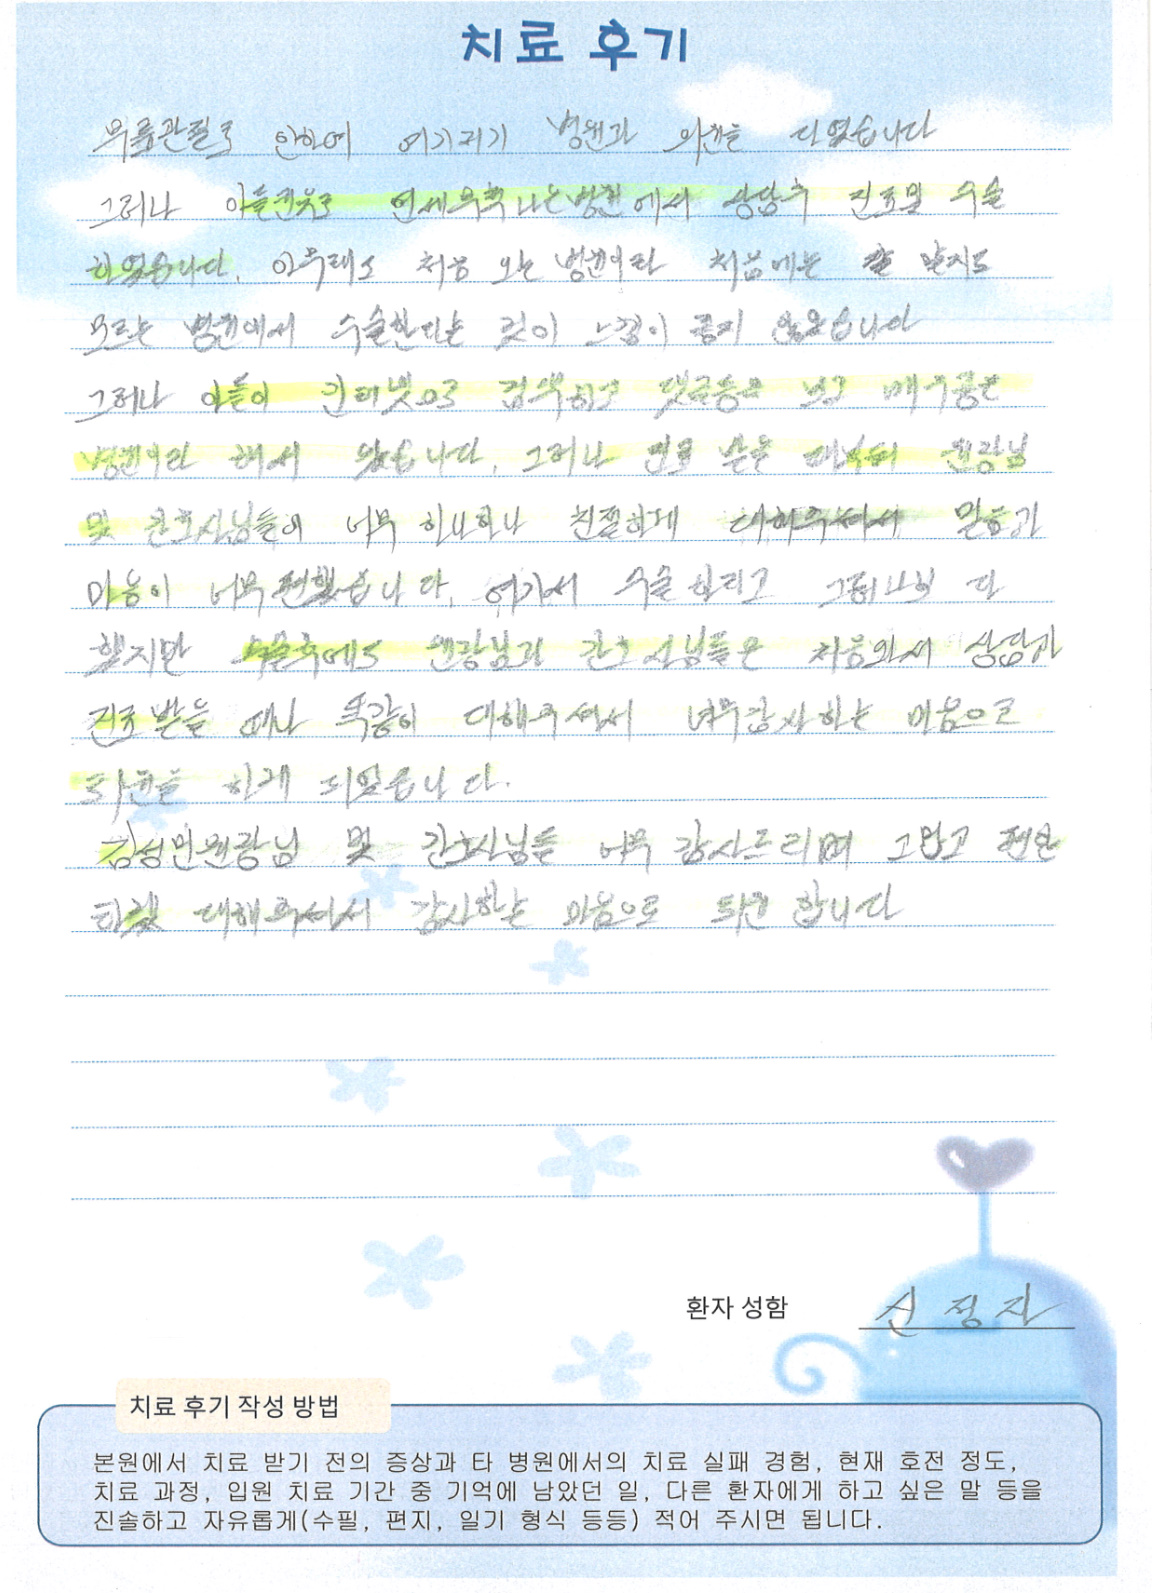 치료 후기
무릎관절로 인하여 여기저기 병원과 의원을 다녔습니다
그러나 아들권유로 연세무척나은병원에서 상담후 진료및 수술
하였습니다. 아무래도 처음 오는 병원이라 처음에는 잘 알지도
모르는 병원에서 수술한다는 것이 느낌이 좋지 않았습니다
그러나 아들이 인터넷으로 검색하고 댓글등을 보고 매우좋은
병원이란 해서 왔습니다. 그러나 진료 받을 때부터 원장님
및 간호사님들이 너무 하나하나 친절하게 대해주셔서 말씀과
마음이 너무 편했습니다. 여기서 수술 할라고 그러나 다
했지만 수술후에도 원장님과 간호사님들은 처음와서 상담과
진료 받을 때나 똑같이 대해주셔서 너무감사하는 마음으로
퇴원을 하게 되었습니다.
김성민원장님 및 간호사님들 너무 감사드리며 그렇고 편안
대해주셔서 감사하는 마음으로 퇴원 합니다
환자 성함 신정자
치료 후기 작성 방법
본원에서 치료 받기 전의 증상과 타 병원에서의 치료 실패 경험, 현재 호전 정도,
치료 과정, 입원 치료 기간 중 기억에 남았던 일, 다른 환자에게 하고 싶은 말 등을
진솔하고 자유롭게(수필, 편지, 일기 형식 등등) 적어 주시면 됩니다.